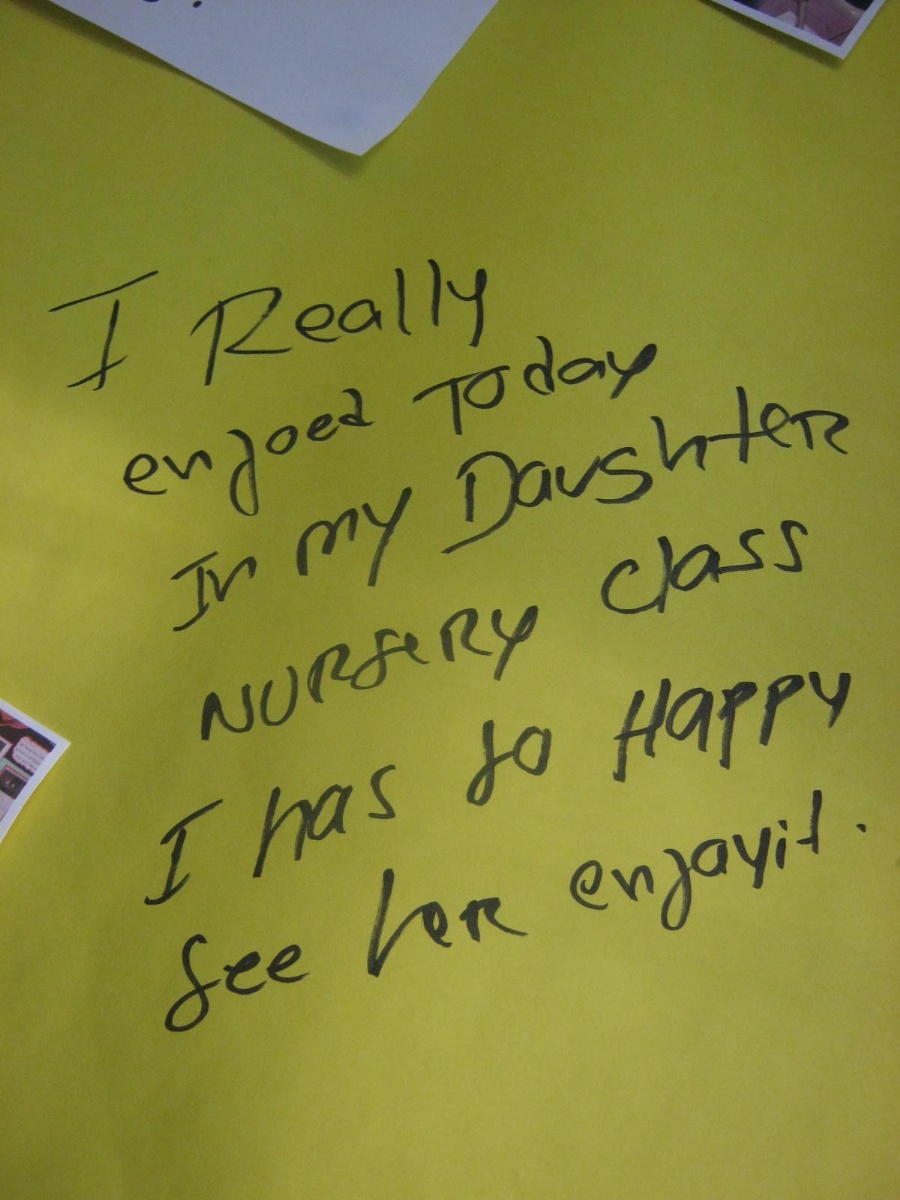 I Really
enjoed Today
In my Daughter
NURSERY class
I has so Happy
see her enjayit.